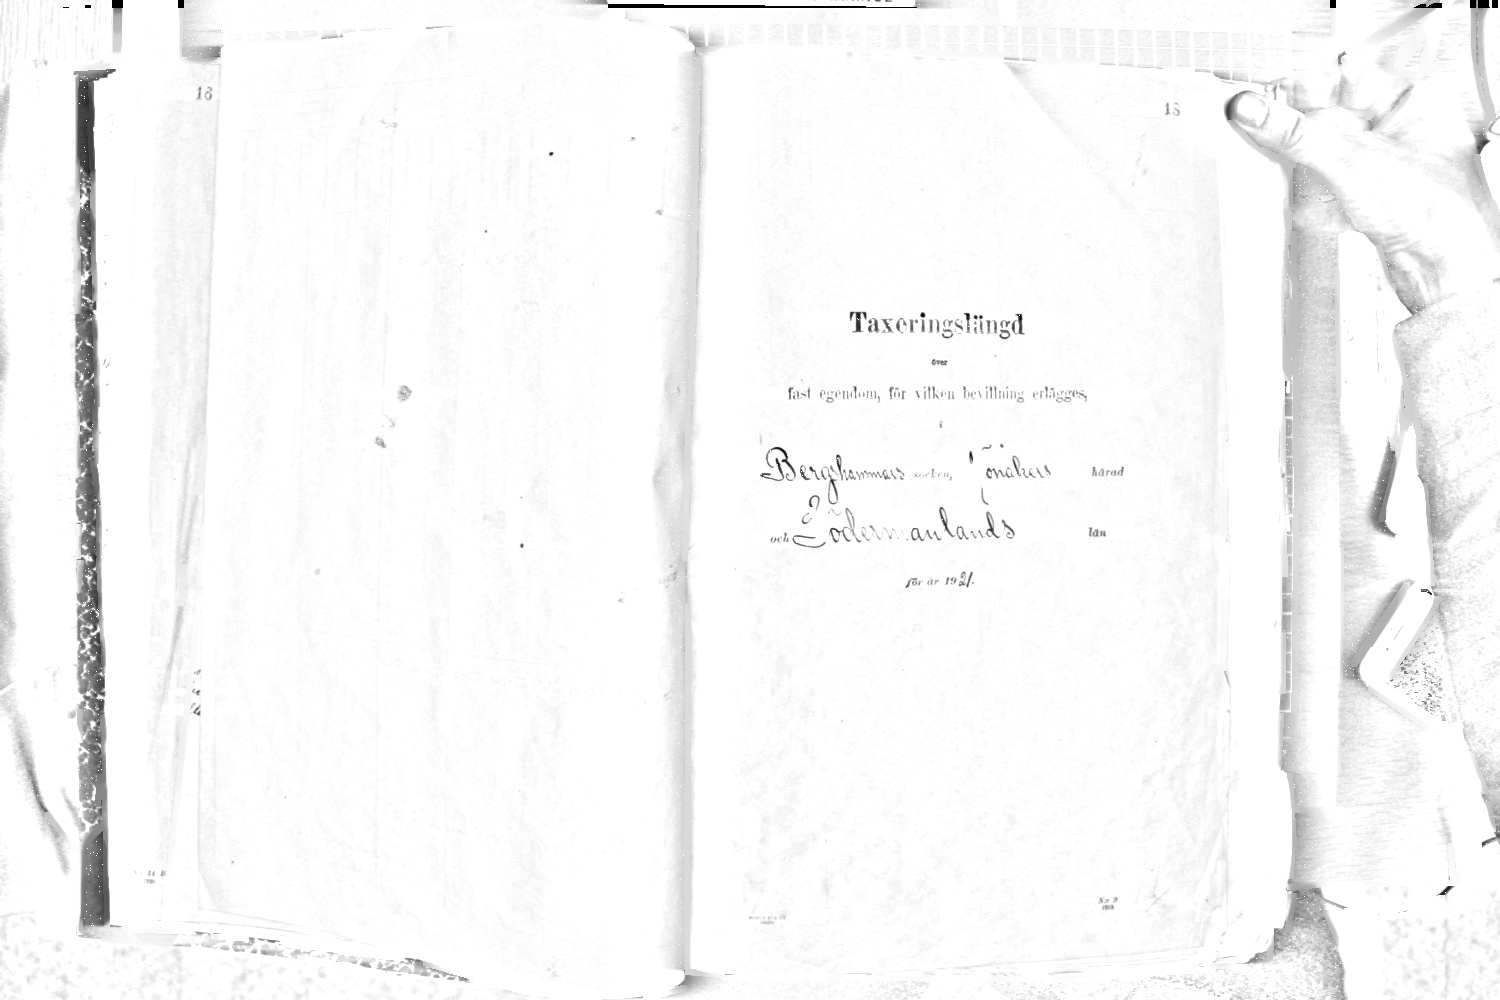 16
18
Taxeringslängd
över
fast egendom, för vilken bevillning erlägges,
i
Berghammars socken, Jönåkers härad
och Södermanlands län
för år 1921.
N:o 9